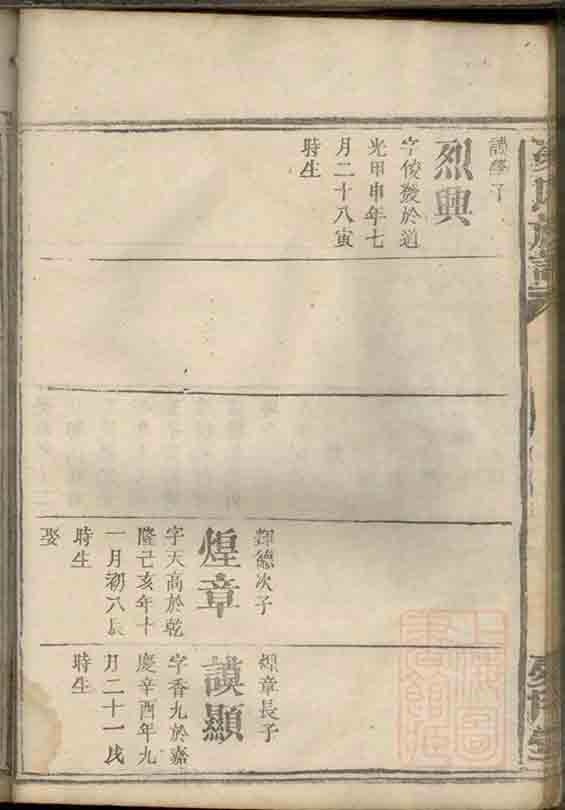 氏族譜
謨學子
烈興
字俊發於道
光甲申年七
月二十八寅
時生
輝德次子
煌章
字天高於乾
隆己亥年十
一月初八辰
時生
娶
煌章長子
謨顯
字香九於嘉
慶辛酉年九
月二十一戌
時生
上海圖
書館藏